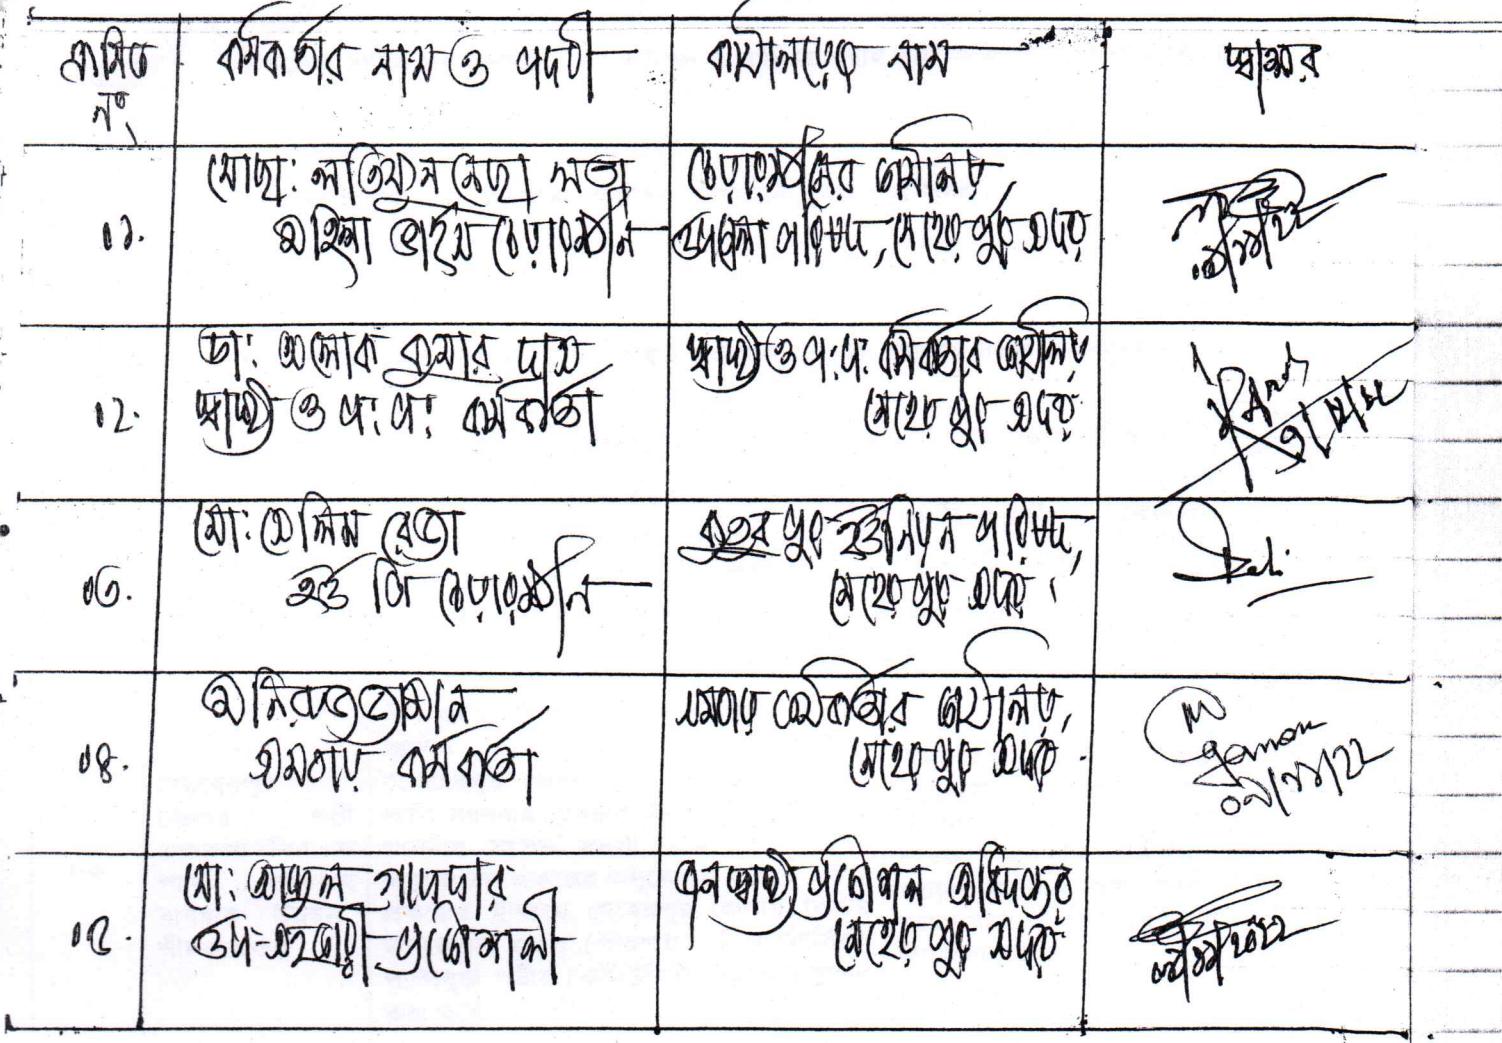 ক্রমিক নং
কর্মকর্তার নাম ও পদবী
কার্যালয়ের নাম
স্বাক্ষর
০১.
মোছা: লতিফুন নেছা লতা
মহিলা ভাইস চেয়ারম্যান
চেয়ারম্যানের কার্যালয়,
উপজেলা পরিষদ, মেহেরপুর সদর
০২.
ডা: অলোক কুমার দাস
স্বাস্থ্য ও প: প: কর্মকর্তা
স্বাস্থ্য ও প: প: কর্মকর্তার কার্যালয়
মেহেরপুর সদর
০৩.
মো: সেলিম রেজা
ইউ পি চেয়ারম্যান
কুতুবপুর ইউনিয়ন পরিষদ,
মেহেরপুর সদর।
০৪.
মনিরুজ্জামান
সমবায় কর্মকর্তা
সমবায় কর্মকর্তার কার্যালয়,
মেহেরপুর সদর
০৫
মো:
উপ-সহকারী প্রকৌশলী
জনস্বাস্থ্য প্রকৌশল অধিদপ্তর
মেহেরপুর সদর